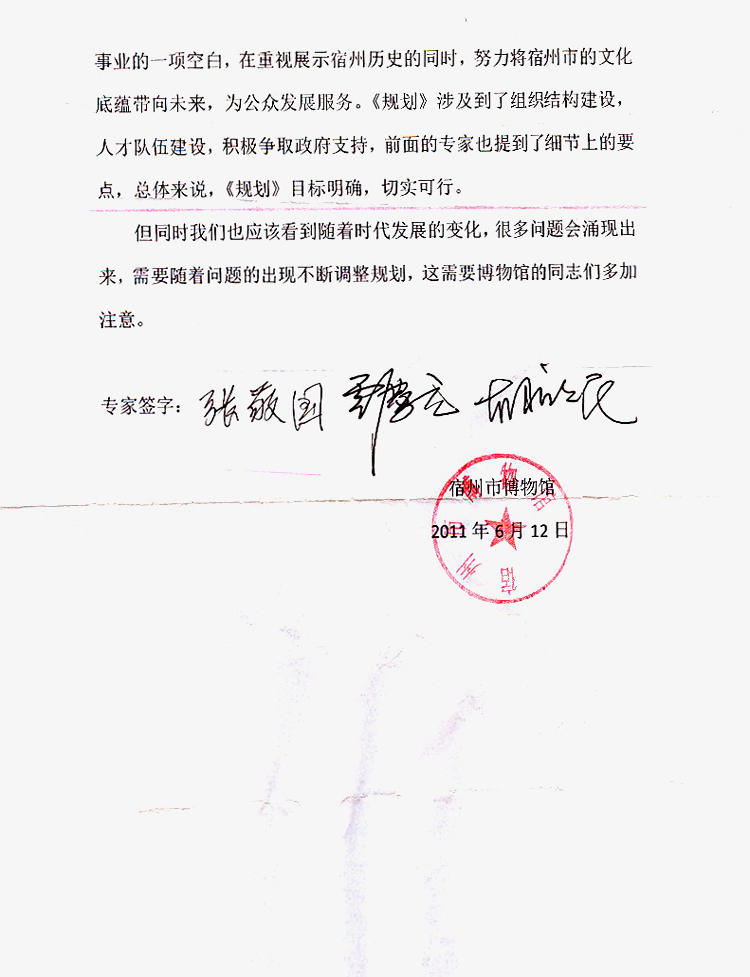 事业的一项空白，在重视展示宿州历史的同时，努力将宿州市的文化
底蕴带向未来，为公众发展服务。《规划》涉及到了组织结构建设，
人才队伍建设，积极争取政府支持，前面的专家也提到了细节上的要
点，总体来说，《规划》目标明确，切实可行。
但同时我们也应该看到随着时代发展的变化，很多问题会涌现出
来，需要随着问题的出现不断调整规划，这需要博物馆的同志们多加
注意。
专家签字：张敬国
宿州市博物馆
2011 年 6 月 12 日
宿州市博物馆